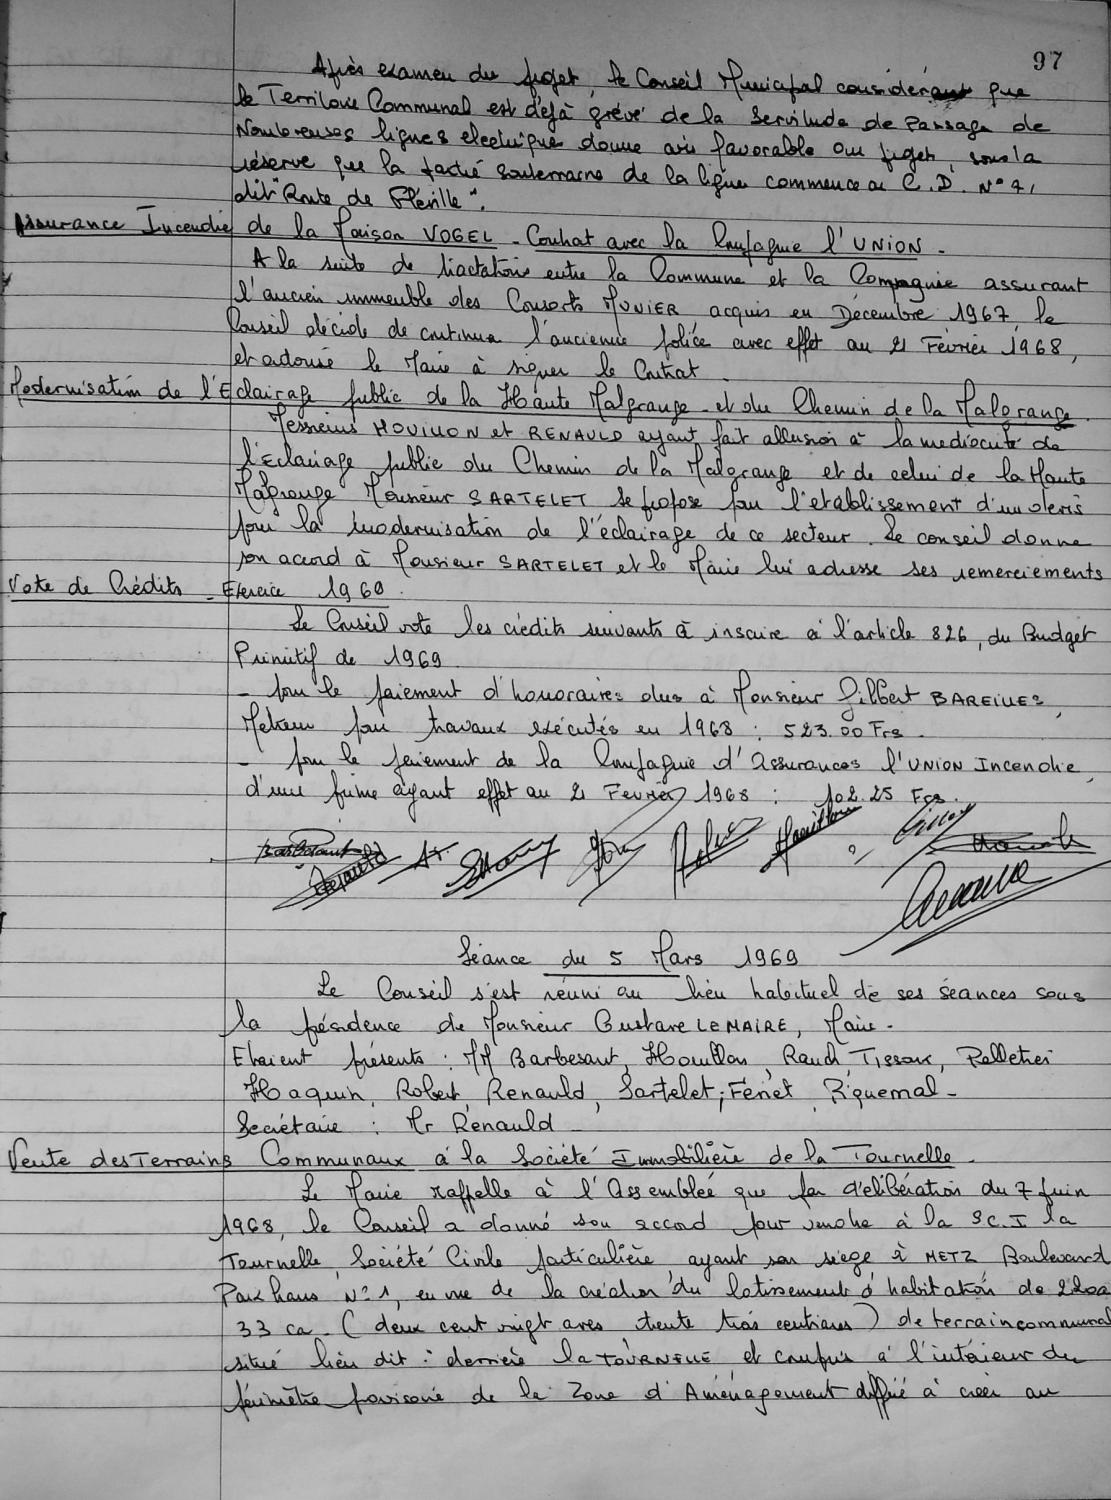 97
Après examen du projet, le Conseil Municipal considérant que
le Territoire Communal est déjà grévé de la Servitude de Passage de
Nombreuses lignes electrique donne avis favorable au projet, sous la
réserve que la partie souterraine de la ligne commence au C.D. N° 71
dit "Route de Fléville".
Assurance Incendie de la Maison VOGEL - Contrat avec la Compagnie l'UNION -
A la suite de tractations entre la Commune et la Compagnie assurant
l'ancien immeuble des Consorts MUNIER acquis en Décembre 1967, le
Conseil décide de continuer l'ancienne police avec effet au 21 Février 1968,
et autorise le Maire à signer le Contrat.
Modernisation de l'Eclairage public de la Haute Malgrange - et du Chemin de la Malgrange.
Messieurs HOUILLON et RENAULD ayant fait allusion à la mediocrité de
l'Eclairage public du Chemin de la Malgrange et de celui de la Haute
Malgrange Monsieur SARTELET se propose pour l'etablissement d'un devis
pour la modernisation de l'éclairage de ce secteur. Le conseil donne
son accord à Monsieur SARTELET et le Maire lui adresse ses remerciements
Vote de Crédits - Exercice 1969.
Le Conseil vote les crédits suivants à inscrire à l'article 826, du Budget
Primitif de 1969
- pour le paiement d'honoraires dus à Monsieur Gilbert BAREILLES,
Metreur pour travaux exécutés en 1968 : 523.00 Frs.
- pour le paiement de la Compagnie d'Assurances l'UNION Incendie,
d'une prime ayant effet au 21 Fevrier 1968 : 102.25 Frs.
Barbesant Renauld Houillon
Séance du 5 Mars 1969
Le Conseil s'est réuni au lieu habituel de ses séances sous
la présidence de Monsieur Gustave LEMAIRE, Maire.
Etaient présents : MM Barbesant, Houillon, Rauch, Tissoux, Pelletier
Haquin, Robert, Renauld, Sartelet, Feriet, Riquemal -
Secrétaire : Mr Renauld -
Vente des Terrains Communaux à la Société Immobilière de la Tournelle.
Le Maire rappelle à l'Assemblée que par délibération du 7 Juin
1968, le Conseil a donné son accord pour vendre à la S.C.I la
Tournelle, Société Civile particulière ayant son siège à METZ Boulevard
N° 1, en vue de la création du lotissement d'habitation de 220a
33 ca. (deux cent vingt ares trente trois centiares) de terrain communal
situé lieu dit : derrière la TOURNELLE et compris à l'intérieur du
périmètre provisoire de la Zone d'Aménagement différé à créer au